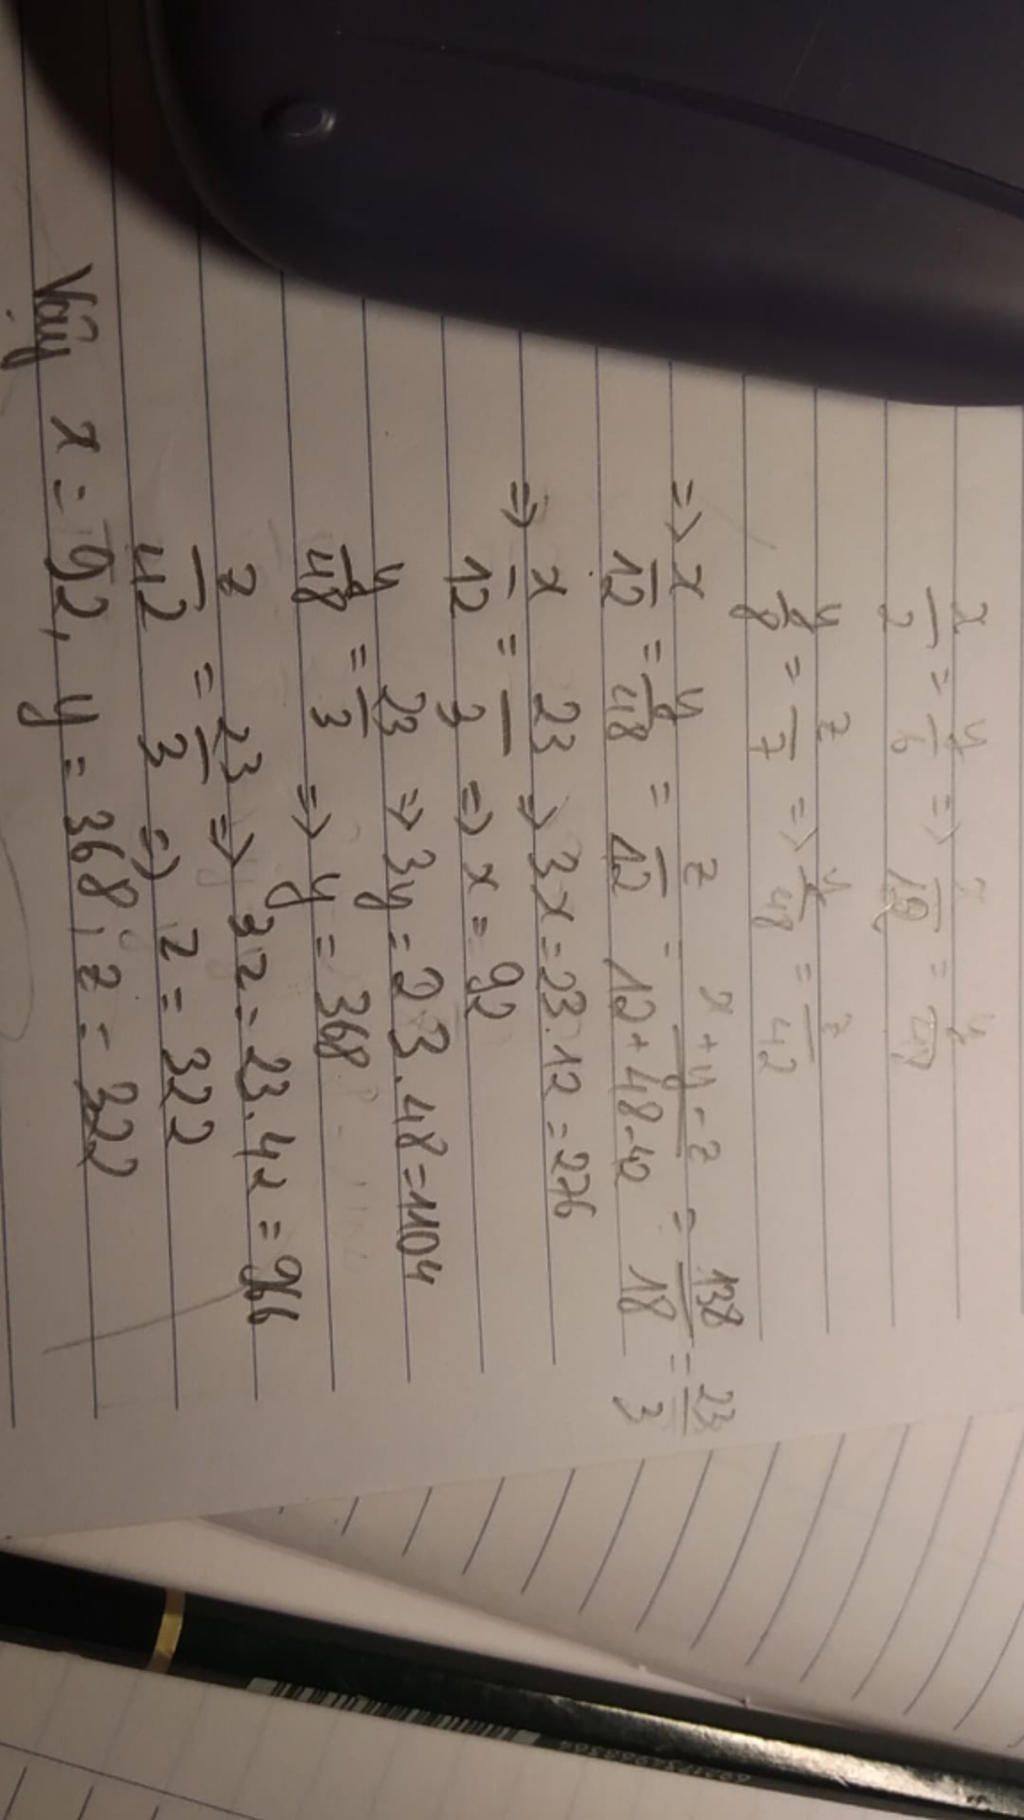 x/2 = y/6 => x/12 = y/48
y/8 = z/7 => y/48 = z/42
=> x/12 = y/48 = z/42 = (x+y-z)/(12+48-42) = 138/18 = 23/3
=> x/12 = 23/3 => 3x = 23.12 = 276
=> x = 92
y/48 = 23/3 => 3y = 23.48 = 1104
=> y = 368
z/42 = 23/3 => 3z = 23.42 = 966
=> z = 322
Vậy x = 92, y = 368; z = 322